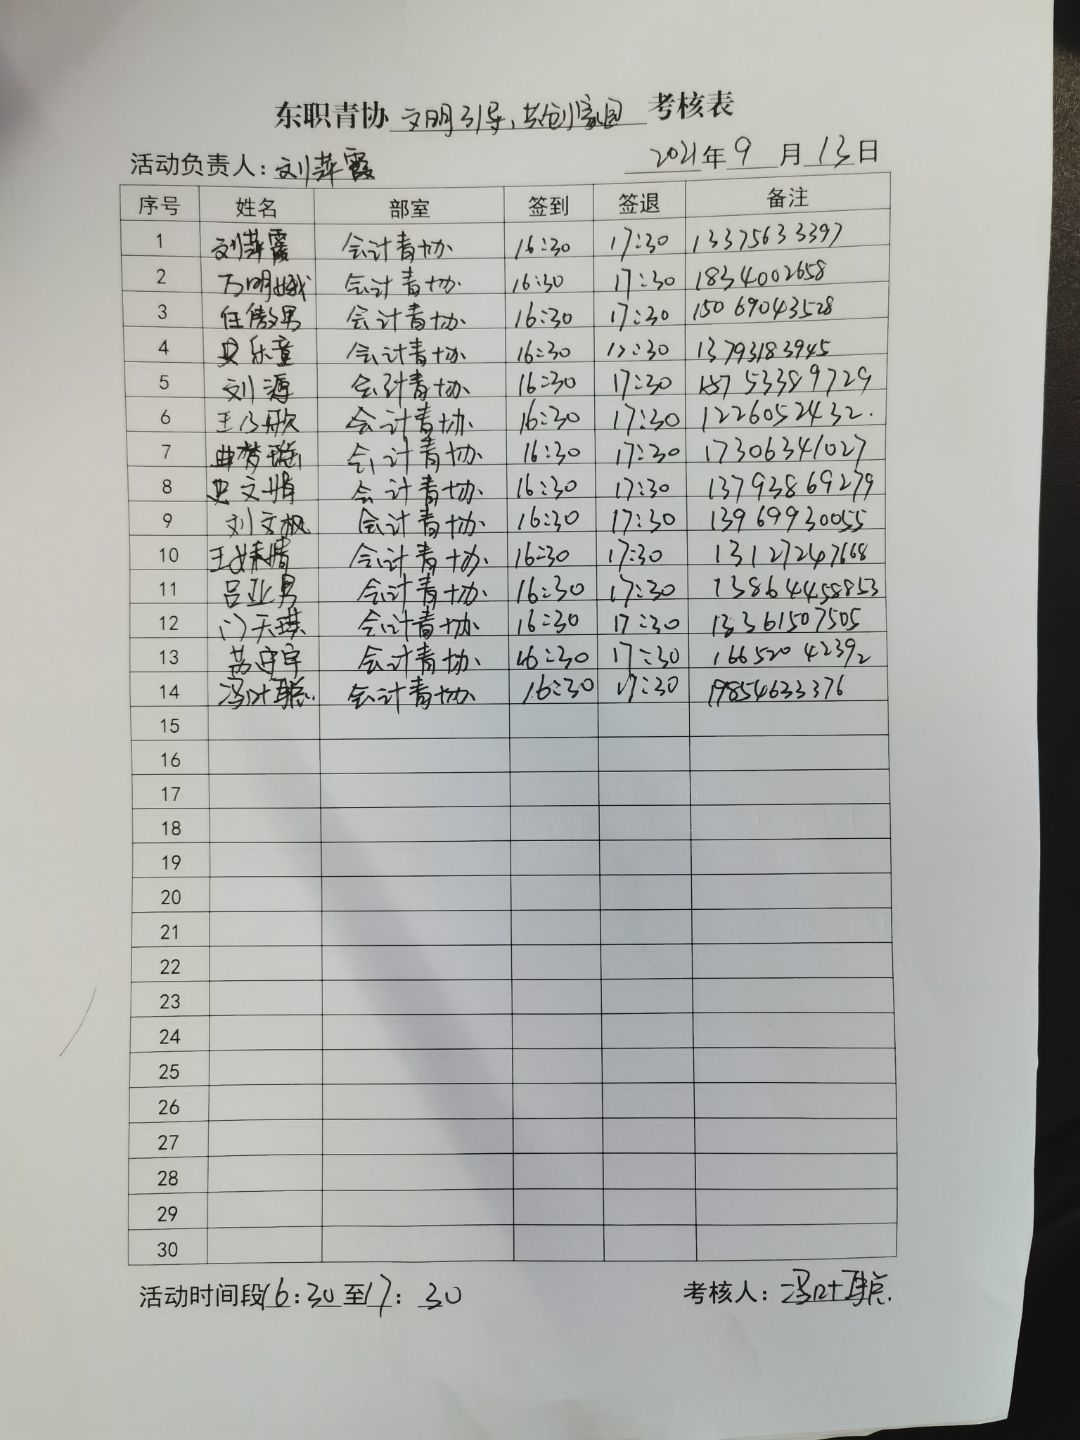 东职青协 文明引导,共创家园 考核表
活动负责人:刘萍霞 2021年9月13日
序号 姓名 部室 签到 签退 备注
1 刘萍霞 会计青协 16:30 17:30 13375633397
2 万明娥 会计青协 16:30 17:30 1834002658
3 任傲男 会计青协 16:30 17:30 15069043528
4 史乐童 会计青协 16:30 17:30 13793183945
5 刘源 会计青协 16:30 17:30 18753389729
6 王乃欣 会计青协 16:30 17:30 1226052432.
7 曲梦瑶 会计青协 16:30 17:30 17306341027
8 史文娟 会计青协 16:30 17:30 13793869279
9 刘文枫 会计青协 16:30 17:30 13969930055
10 会计青协 16:30 17:30 13127247668
11 吕亚男 会计青协 16:30 17:30 13864458853
12 门天琪 会计青协 16:30 17:30 13361507505
13 苏守宇 会计青协 16:30 17:30 16652042392
14 冯叶聪 会计青协 16:30 17:30 19854633376
15
16
17
18
19
20
21
22
23
24
25
26
27
28
29
30
活动时间段16:30至17:30 考核人:冯叶聪